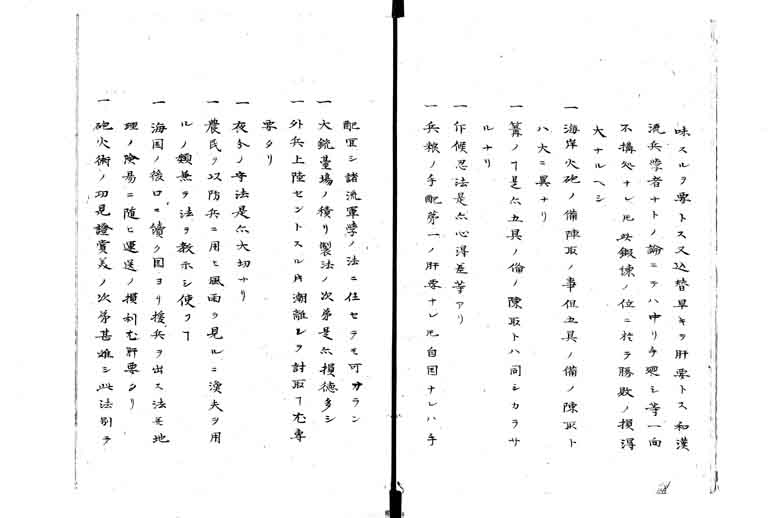 味スルヲ要トス又込替早キヲ肝要トス和漢
流兵学者ナトノ論ニテハ中リ手廻シ等一向
不構処ナレ𪜈此鍛煉ノ位ニ於テ勝敗ノ損得
大ナルヘシ
一海岸火砲ノ備陳取ノ事但五具ノ備ノ陳取ト
ハ大ニ異ナリ
一篝ノヿ是亦五具ノ備ノ陳取トハ同シカラサ
ルナリ
一斥候忍法是亦心得差等アリ
一兵粮ノ手配第一ノ肝要ナレ𪜈自国ナレハ手
配宜シ諸流軍学ノ法ニ任セテモ可ナラン
一大銃臺場ノ積リ製法ノ次第是亦損徳多シ
一外兵上陸セントスル片潮離レヲ討取ヿ尤専
要タリ
一夜分ノ守法是亦大切ナリ
一農民ヲ以防兵ニ用ヒ風雨ヲ見ルニ漁夫ヲ用
ルノ類兼テ法ヲ教示シ使フヿ
一海国ノ後口ニ續ク国ヨリ援兵ヲ出ス法并地
理ノ険易ニ随ヒ運送ノ損利尤肝要タリ
一砲火術ノ功見證賞美ノ次第甚難シ此法別ヲ